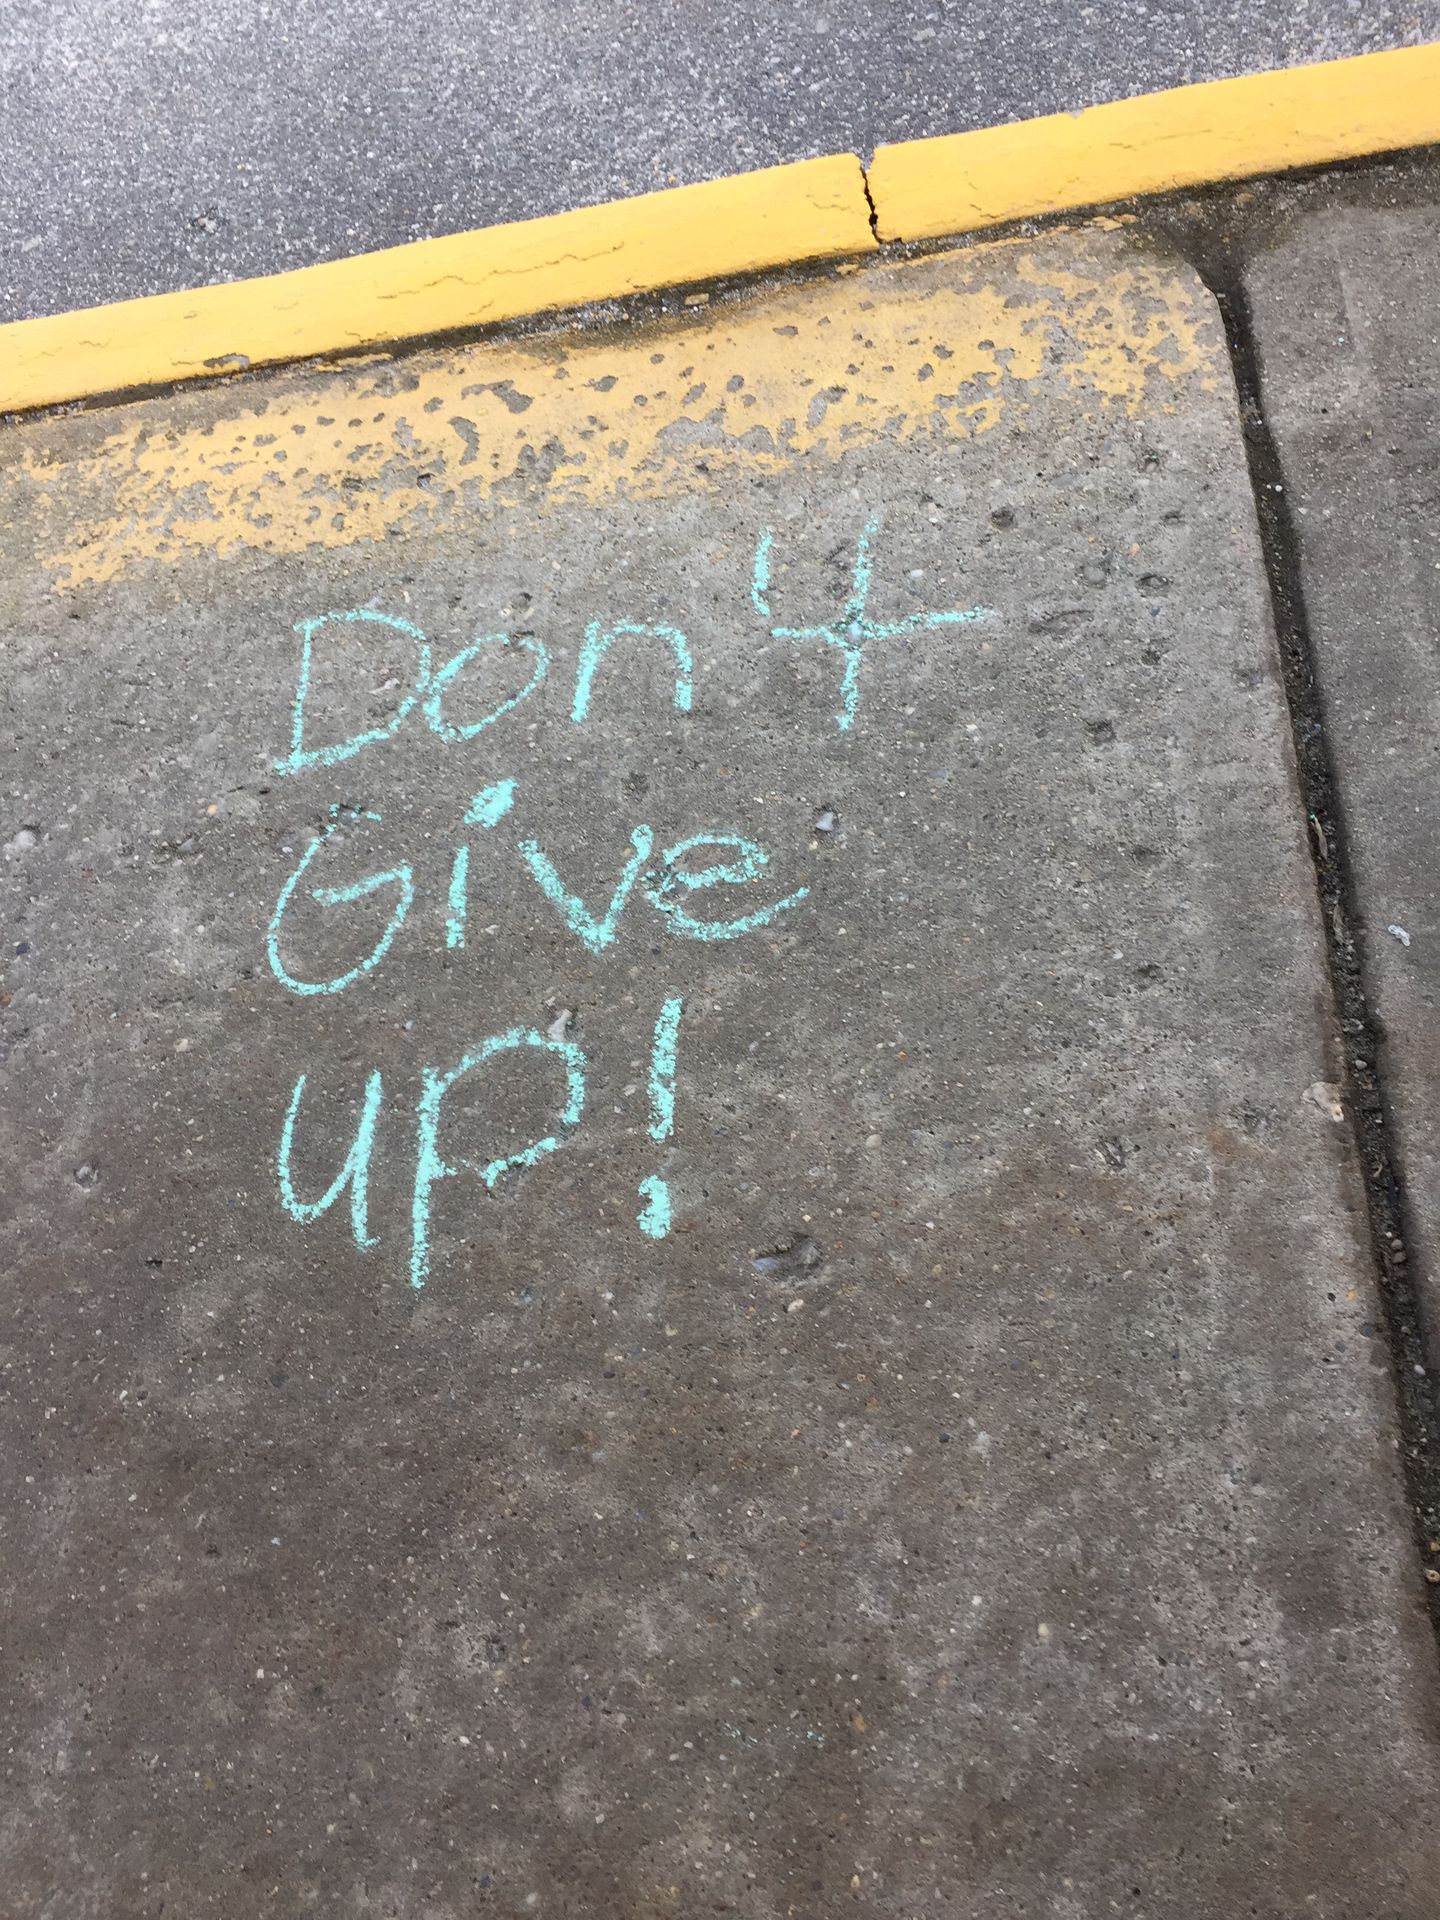 Don't
Give
up!